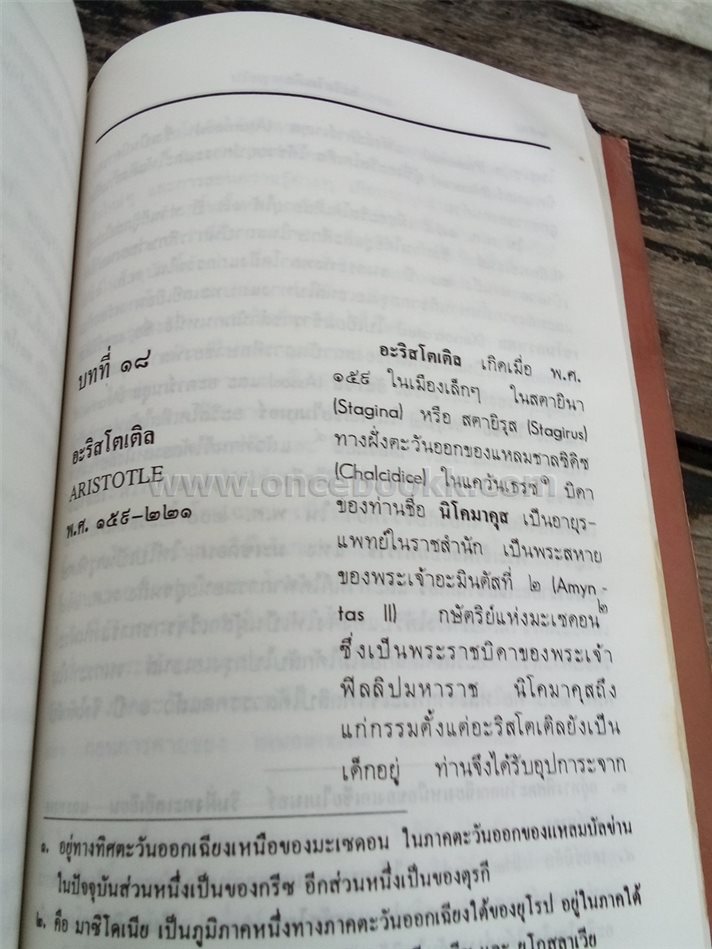 บทที่ ๑๘
อะริสโตเติล
ARISTOTLE
พ.ศ. ๑๕๙-๒๒๑
อะริสโตเติล เกิดเมื่อ พ.ศ.
๑๕๙ ในเมืองเล็กๆ ในสตายินา
(Stagina) หรือ สตายิรุส (Stagirus)
ทางฝั่งตะวันออกของแหลมชาลซิดิซ
(Chalcidice) ในแคว้นเธรซ๑ บิดา
ของท่านชื่อ นิโคมาคุส เป็นอายุร-
แพทย์ในราชสำนัก เป็นพระสหาย
ของพระเจ้าอะมินตัสที่ ๒ (Amyn-
tas II) กษัตริย์แห่งมะเซดอน๒
ซึ่งเป็นพระราชบิดาของพระเจ้า
ฟิลลิปมหาราช นิโคมาคุสถึง
แก่กรรมตั้งแต่อะริสโตเติลยังเป็น
เด็กอยู่ ท่านจึงได้รับอุปการะจาก
www.oncebookk.com
๑. อยู่ทางทิศตะวันออกเฉียงเหนือของมะเซดอน ในภาคตะวันออกของแหลมบัลข่าน
ในปัจจุบันส่วนหนึ่งเป็นของกรีซ อีกส่วนหนึ่งเป็นของตุรกี
๒. คือ มาซิโดเนีย เป็นภูมิภาคหนึ่งทางภาคตะวันออกเฉียงใต้ของยุโรป อยู่ในภาคใต้
และ ยูโกสลาเวีย